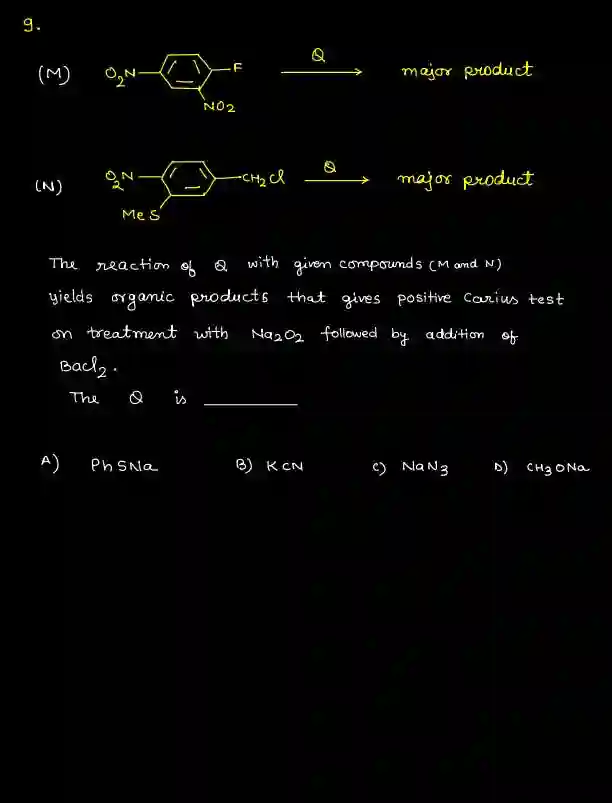 9.
(M) O2N F Q major product
NO2
(N) O2N CH2Cl Q major product
MeS
The reaction of Q with given compounds (M and N)
yields organic products that gives positive Carius test
on treatment with Na2O2 followed by addition of
BaCl2.
The Q is ________
A) PhSNa B) KCN C) NaN3 D) CH3ONa